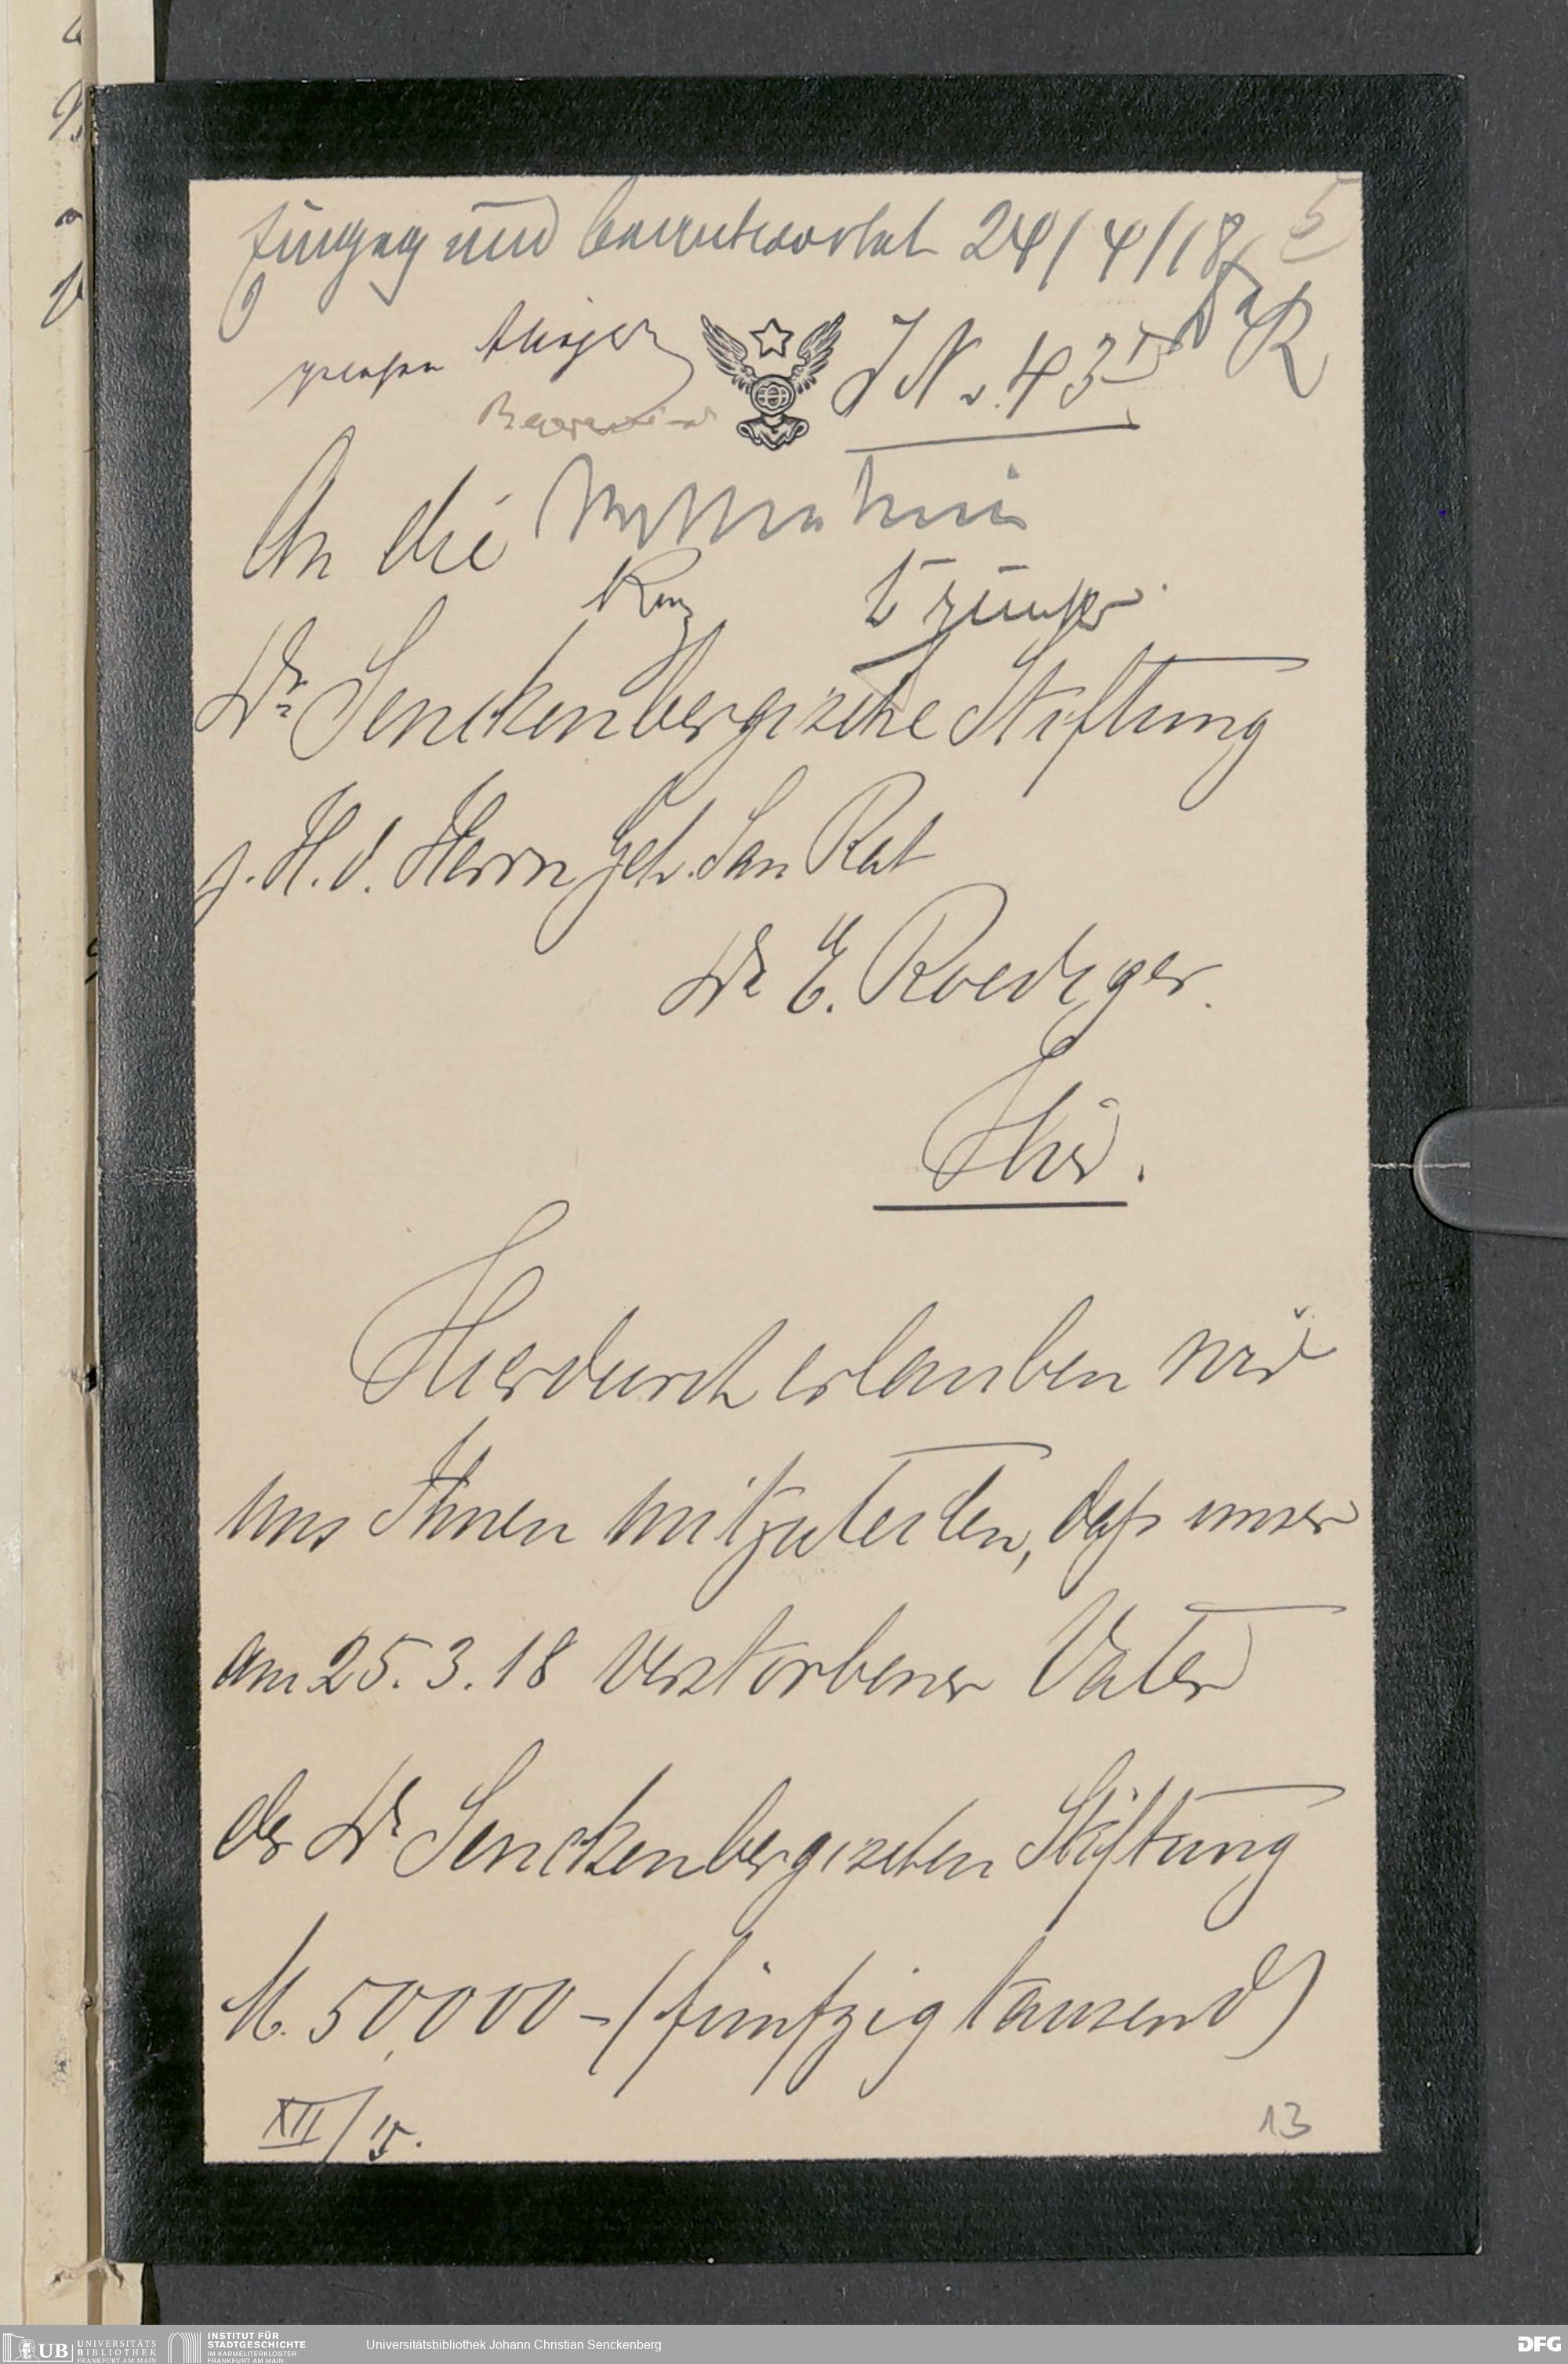 und beantwortet 24/4/18
5
Dr R
gesehen
J N. 43
An die
Dr. Senckenbergische Stiftung
z. H. d. Herrn Geh. San Rat
Dr E. Roediger.
Hier.
Hierdurch erlauben wir
uns Ihnen mitzuteilen, daß unser
am 25.3.18 verstorbener Vater
der Dr Senckenbergischen Stiftung
M. 50,000 - (fünfzigtausend)
XII/15.
13
UB UNIVERSITÄTS
BIBLIOTHEK
FRANKFURT AM MAIN
INSTITUT FÜR
STADTGESCHICHTE
IM KARMELITERKLOSTER
FRANKFURT AM MAIN
Universitätsbibliothek Johann Christian Senckenberg
DFG